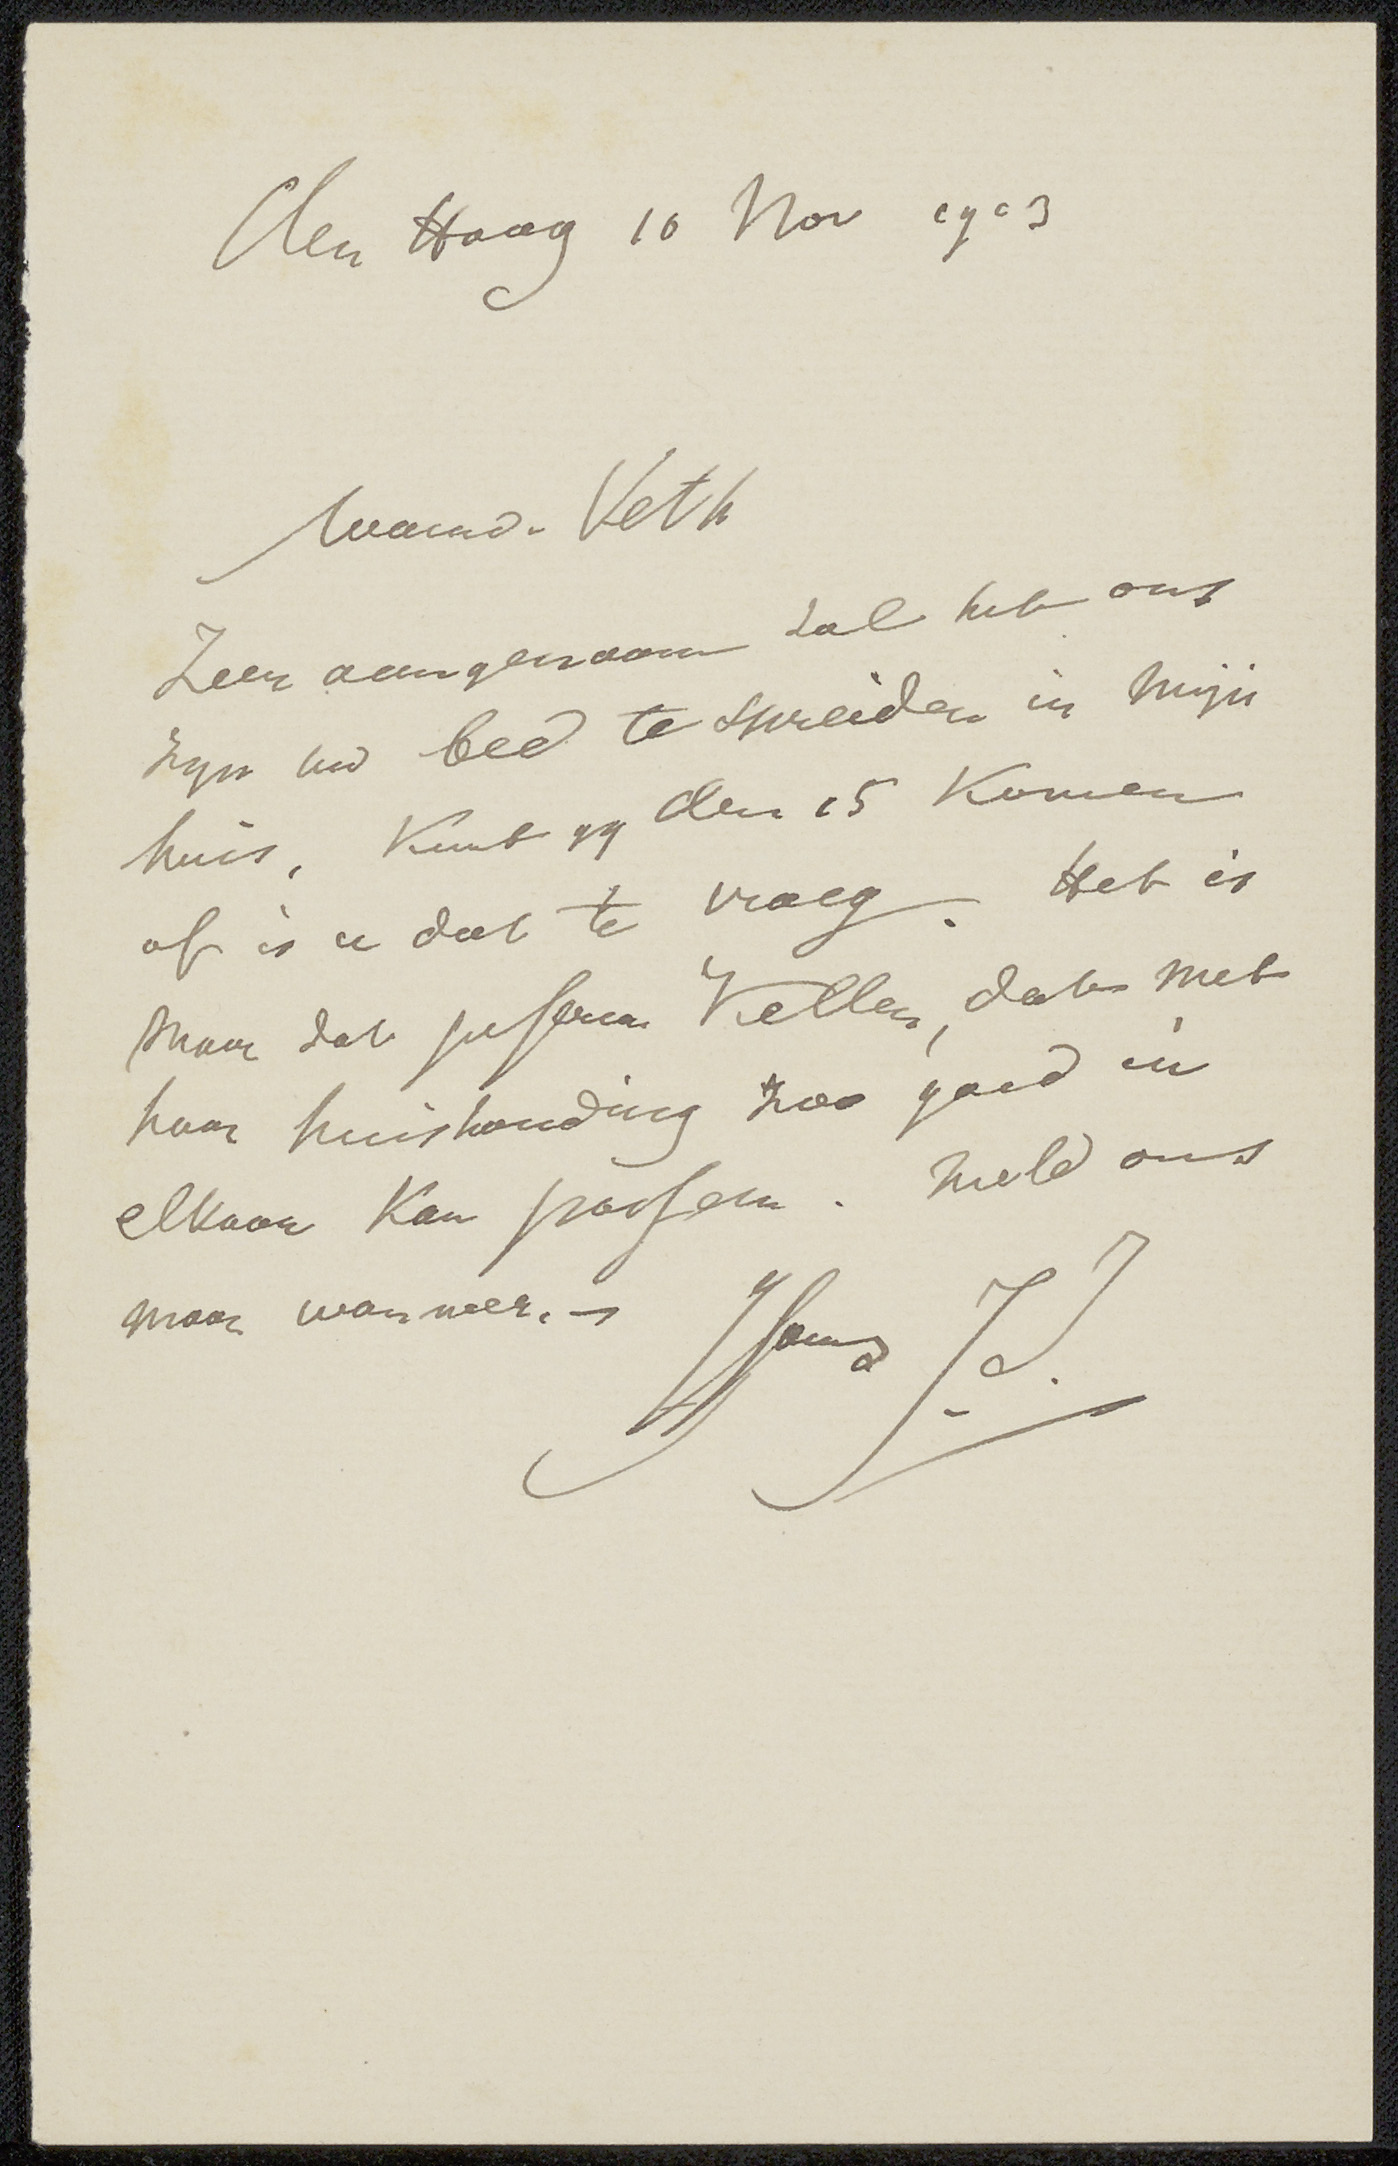 Den Haag 10 Nov 1903
Waard. Veth
Zeer aangenaam zal het ons
zyn uw bed te spreiden in mijn
huis, Kunt gy den 15 Komen
of is u dat te vroeg. Het is
maar dat juffrouw Vetter, dat met
haar huishouding zoo goed in
elkaar Kan passen. Meld ons
maar wanneer. -